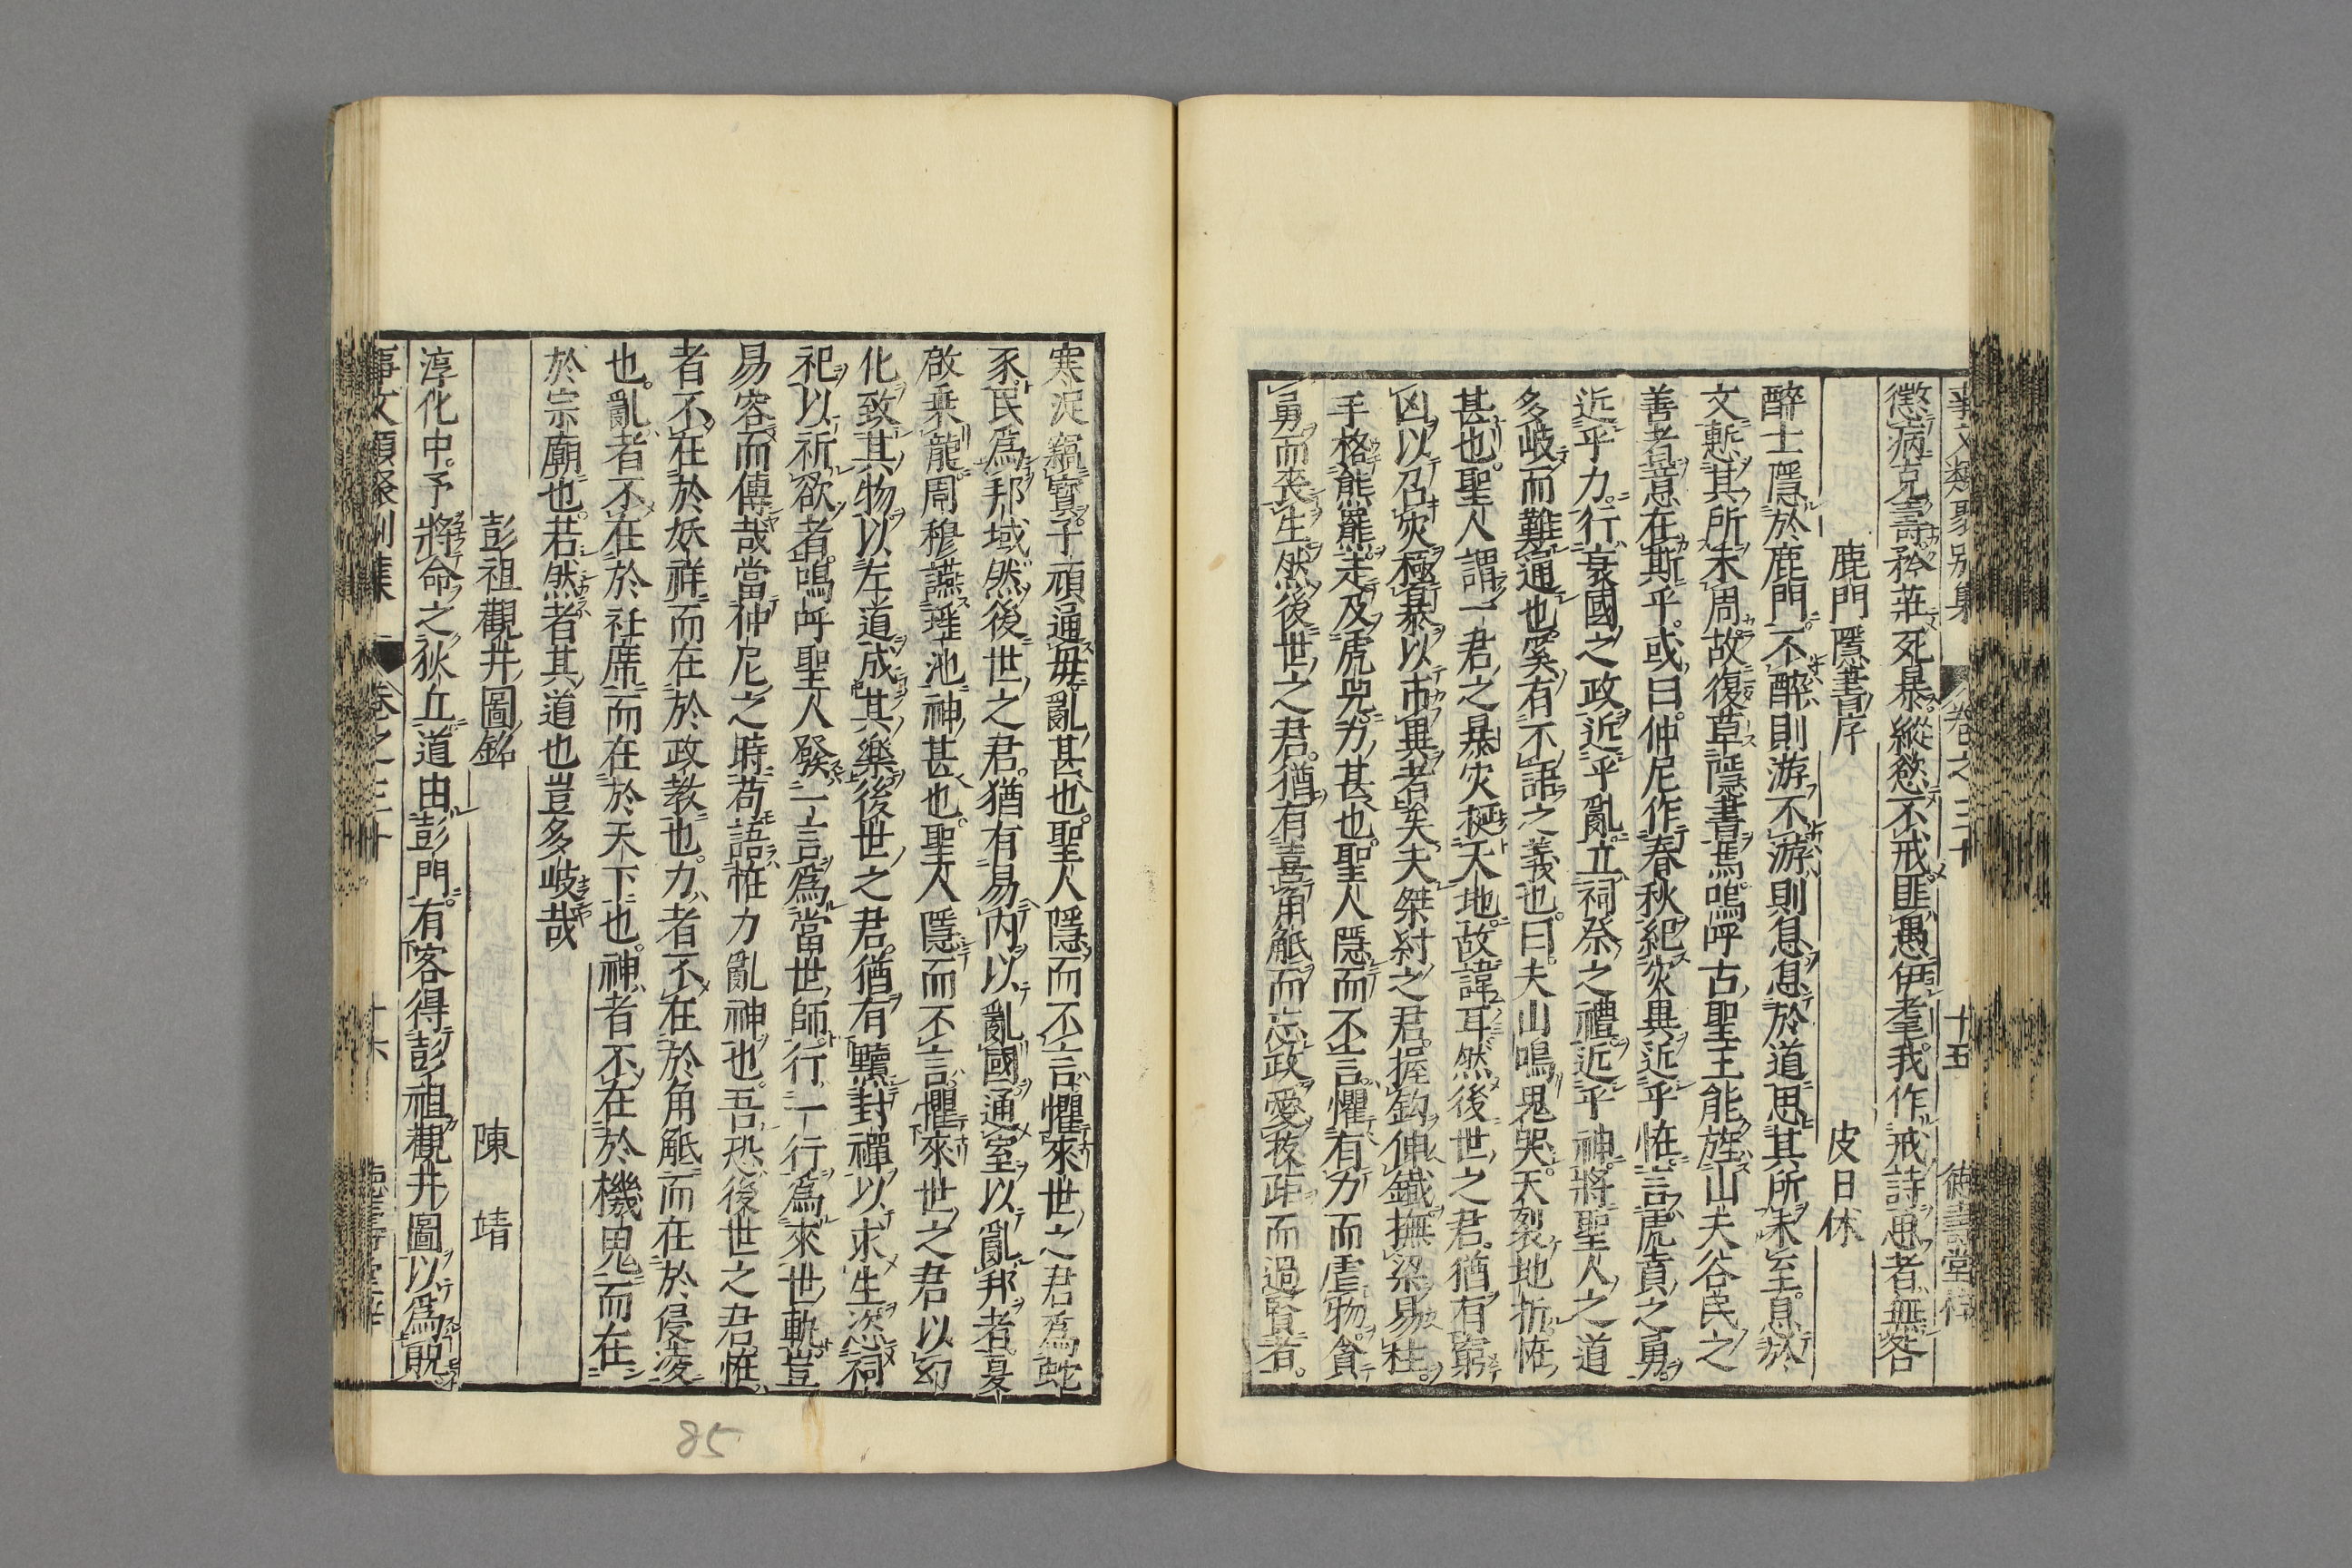 事文類聚別集 卷之三十 十五 德壽堂梓
懲病克壽矜莊死暴縱慾不戒匪愚伊耄我作戒詩思者無咎
鹿門隱書序 皮日休
醉士隱於鹿門不醉則游不游則息息於道思其所未至息於
文慙其所未周故復草隱書焉嗚呼古聖王能旌山夫谷民之
善者意在斯乎或曰仲尼作春秋紀灾異近乎恠言虎賁之勇
近乎力行衰國之政近乎亂立祠祭之禮近乎神將聖人之道
多岐而難通也奚有不語之義也曰夫山鳴鬼哭天裂地折恠
甚也聖人謂一君之暴灾埏天地故諱耳然後世之君猶有窮
凶以召灾極暴以市異者矣夫桀紂之君握鈎伸鐵撫梁易柱
手格熊羆走及虎兕力甚也聖人隱而不言懼有力而虐物貪
勇而喪生然後世之君猶有喜角觝而忘政愛拔距而過賢者
寒浞竊室子頑通母亂甚也聖人隱而不言懼來世之君爲蛇
豕民爲邦域然後世之君猶有易內以亂國通室以亂邦者夏
啟乘龍周穆讌瑤池神甚也聖人隱而不言懼來世之君以幻
化致其物以左道成其樂後世之君猶有黷封禪以求生恣祠
祀以祈欲者嗚呼聖人發一言爲當世師行一行爲來世軌豈
易容而傳哉當仲尼之時苟語恠力亂神也吾恐後世之君恠
者不在於妖祥而在於政教也力者不在於角觝而在於侵凌
也亂者不在於衽席而在於天下也神者不在於機鬼而在
於宗廟也若然者其道也豈多岐哉
彭祖觀井圖銘 陳靖
淳化中予將命之狄丘道由彭門有客得彭祖觀井圖以爲貺
事文類聚別集 卷之三十 十六 德壽堂梓
85